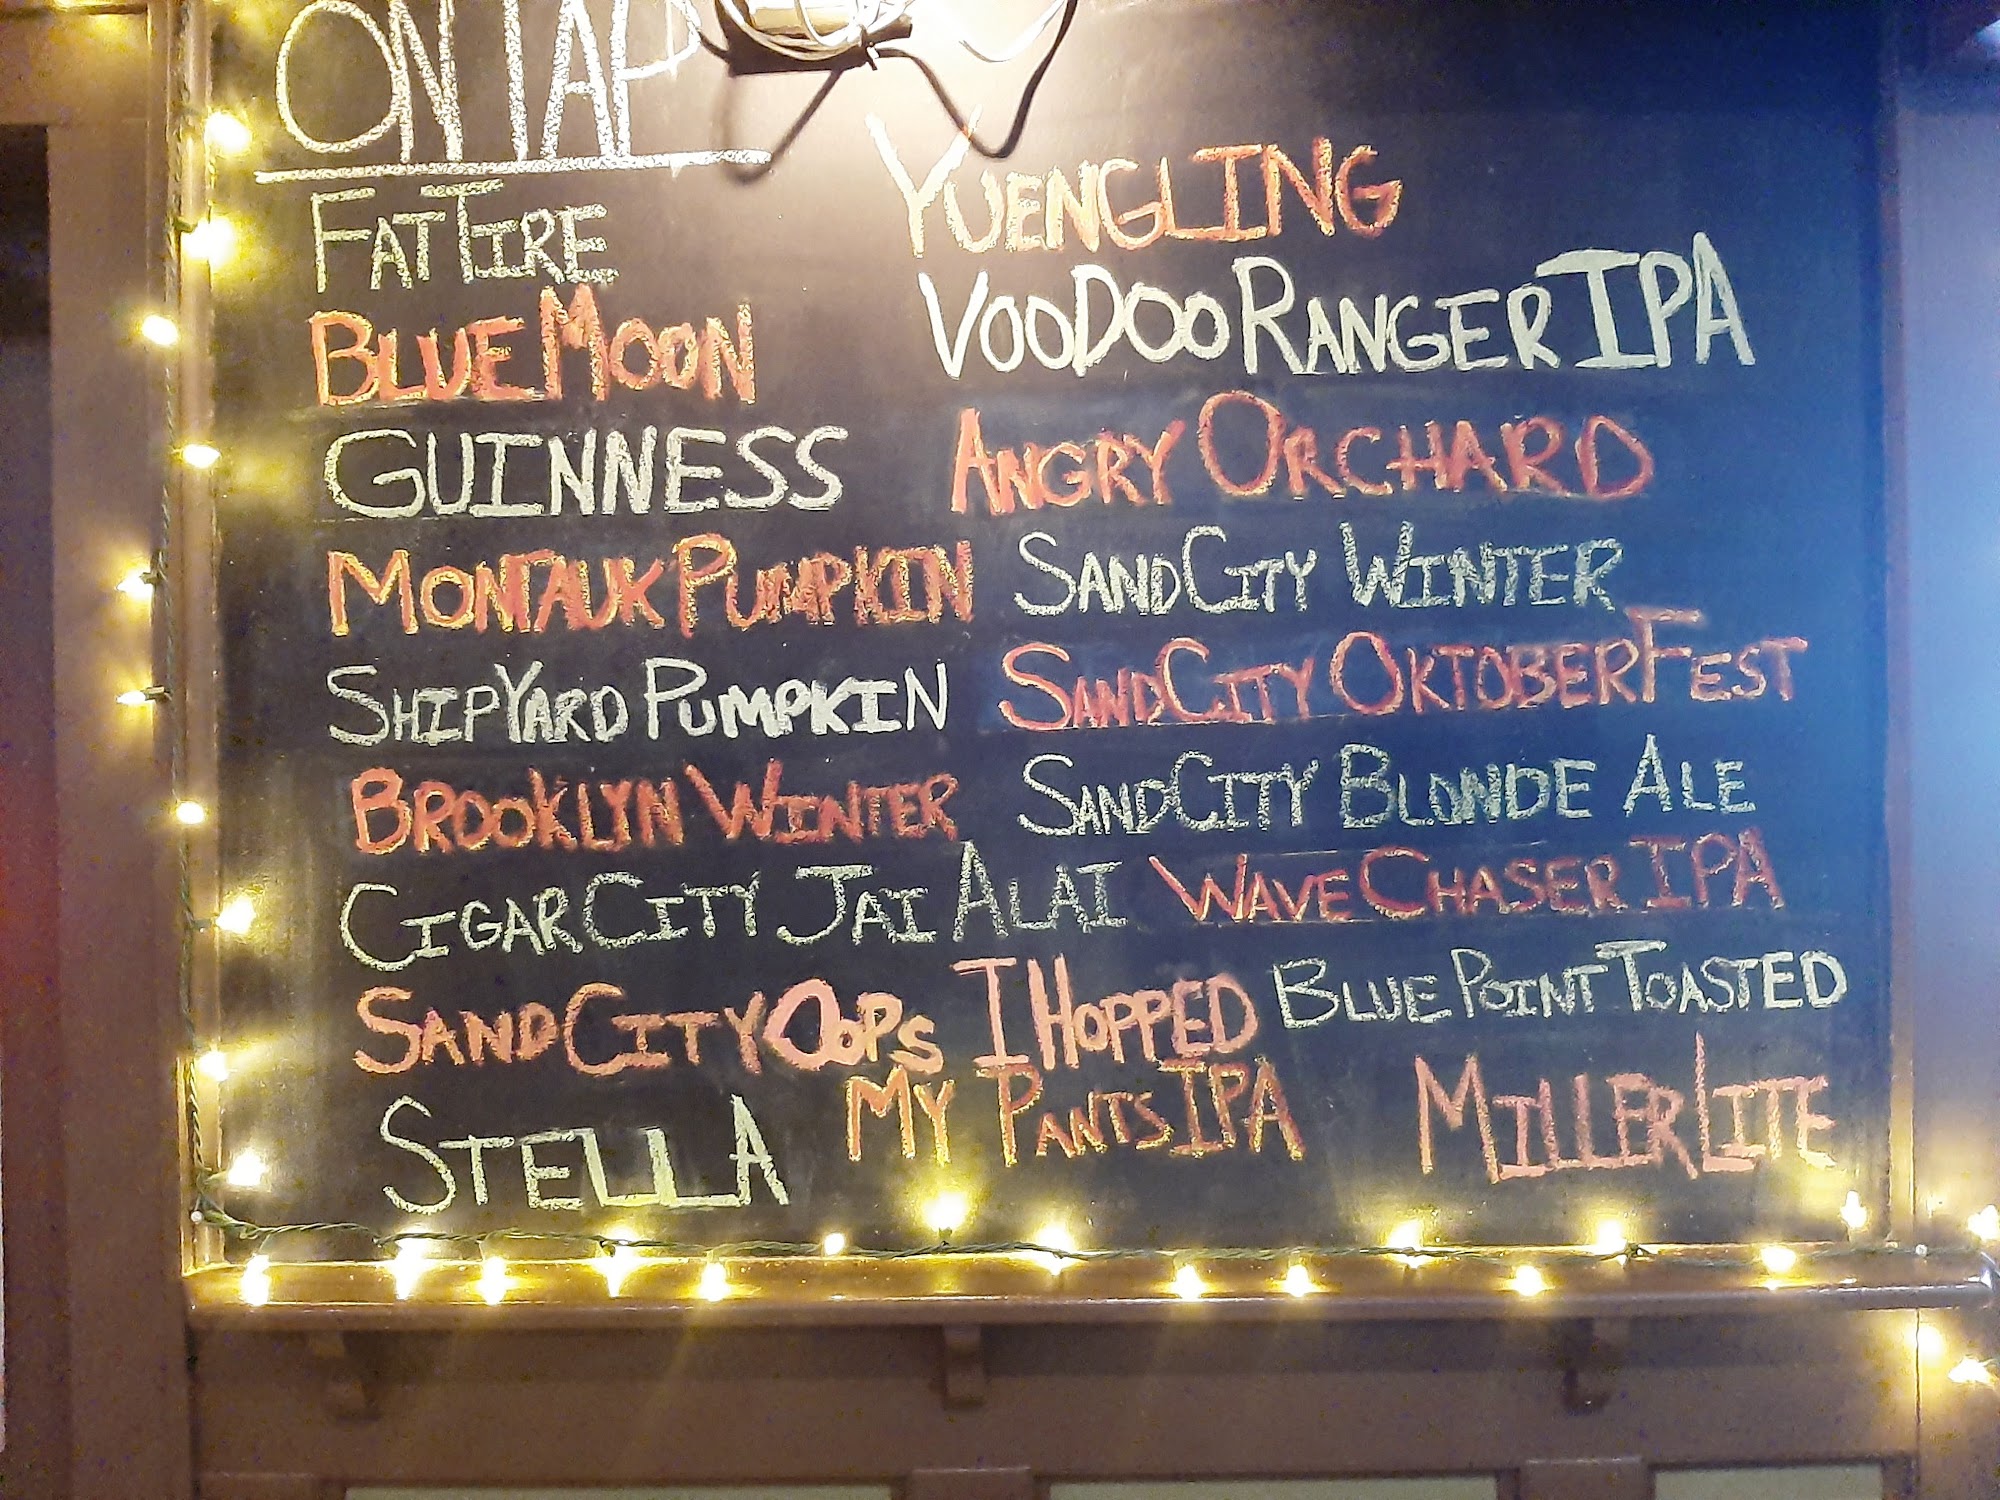 ON TAP
FAT TIRE
BLUE MOON
GUINNESS
MONTAUK PUMPKIN
SHIPYARD PUMPKIN
BROOKLYN WINTER
CIGAR CITY JAI ALAI
SAND CITY OOPS I HOPPED
MY PANTS IPA
STELLA
YUENGLING
VOODOO RANGER IPA
ANGRY ORCHARD
SAND CITY WINTER
SAND CITY OKTOBERFEST
SAND CITY BLONDE ALE
WAVE CHASER IPA
BLUE POINT TOASTED
MILLER LITE